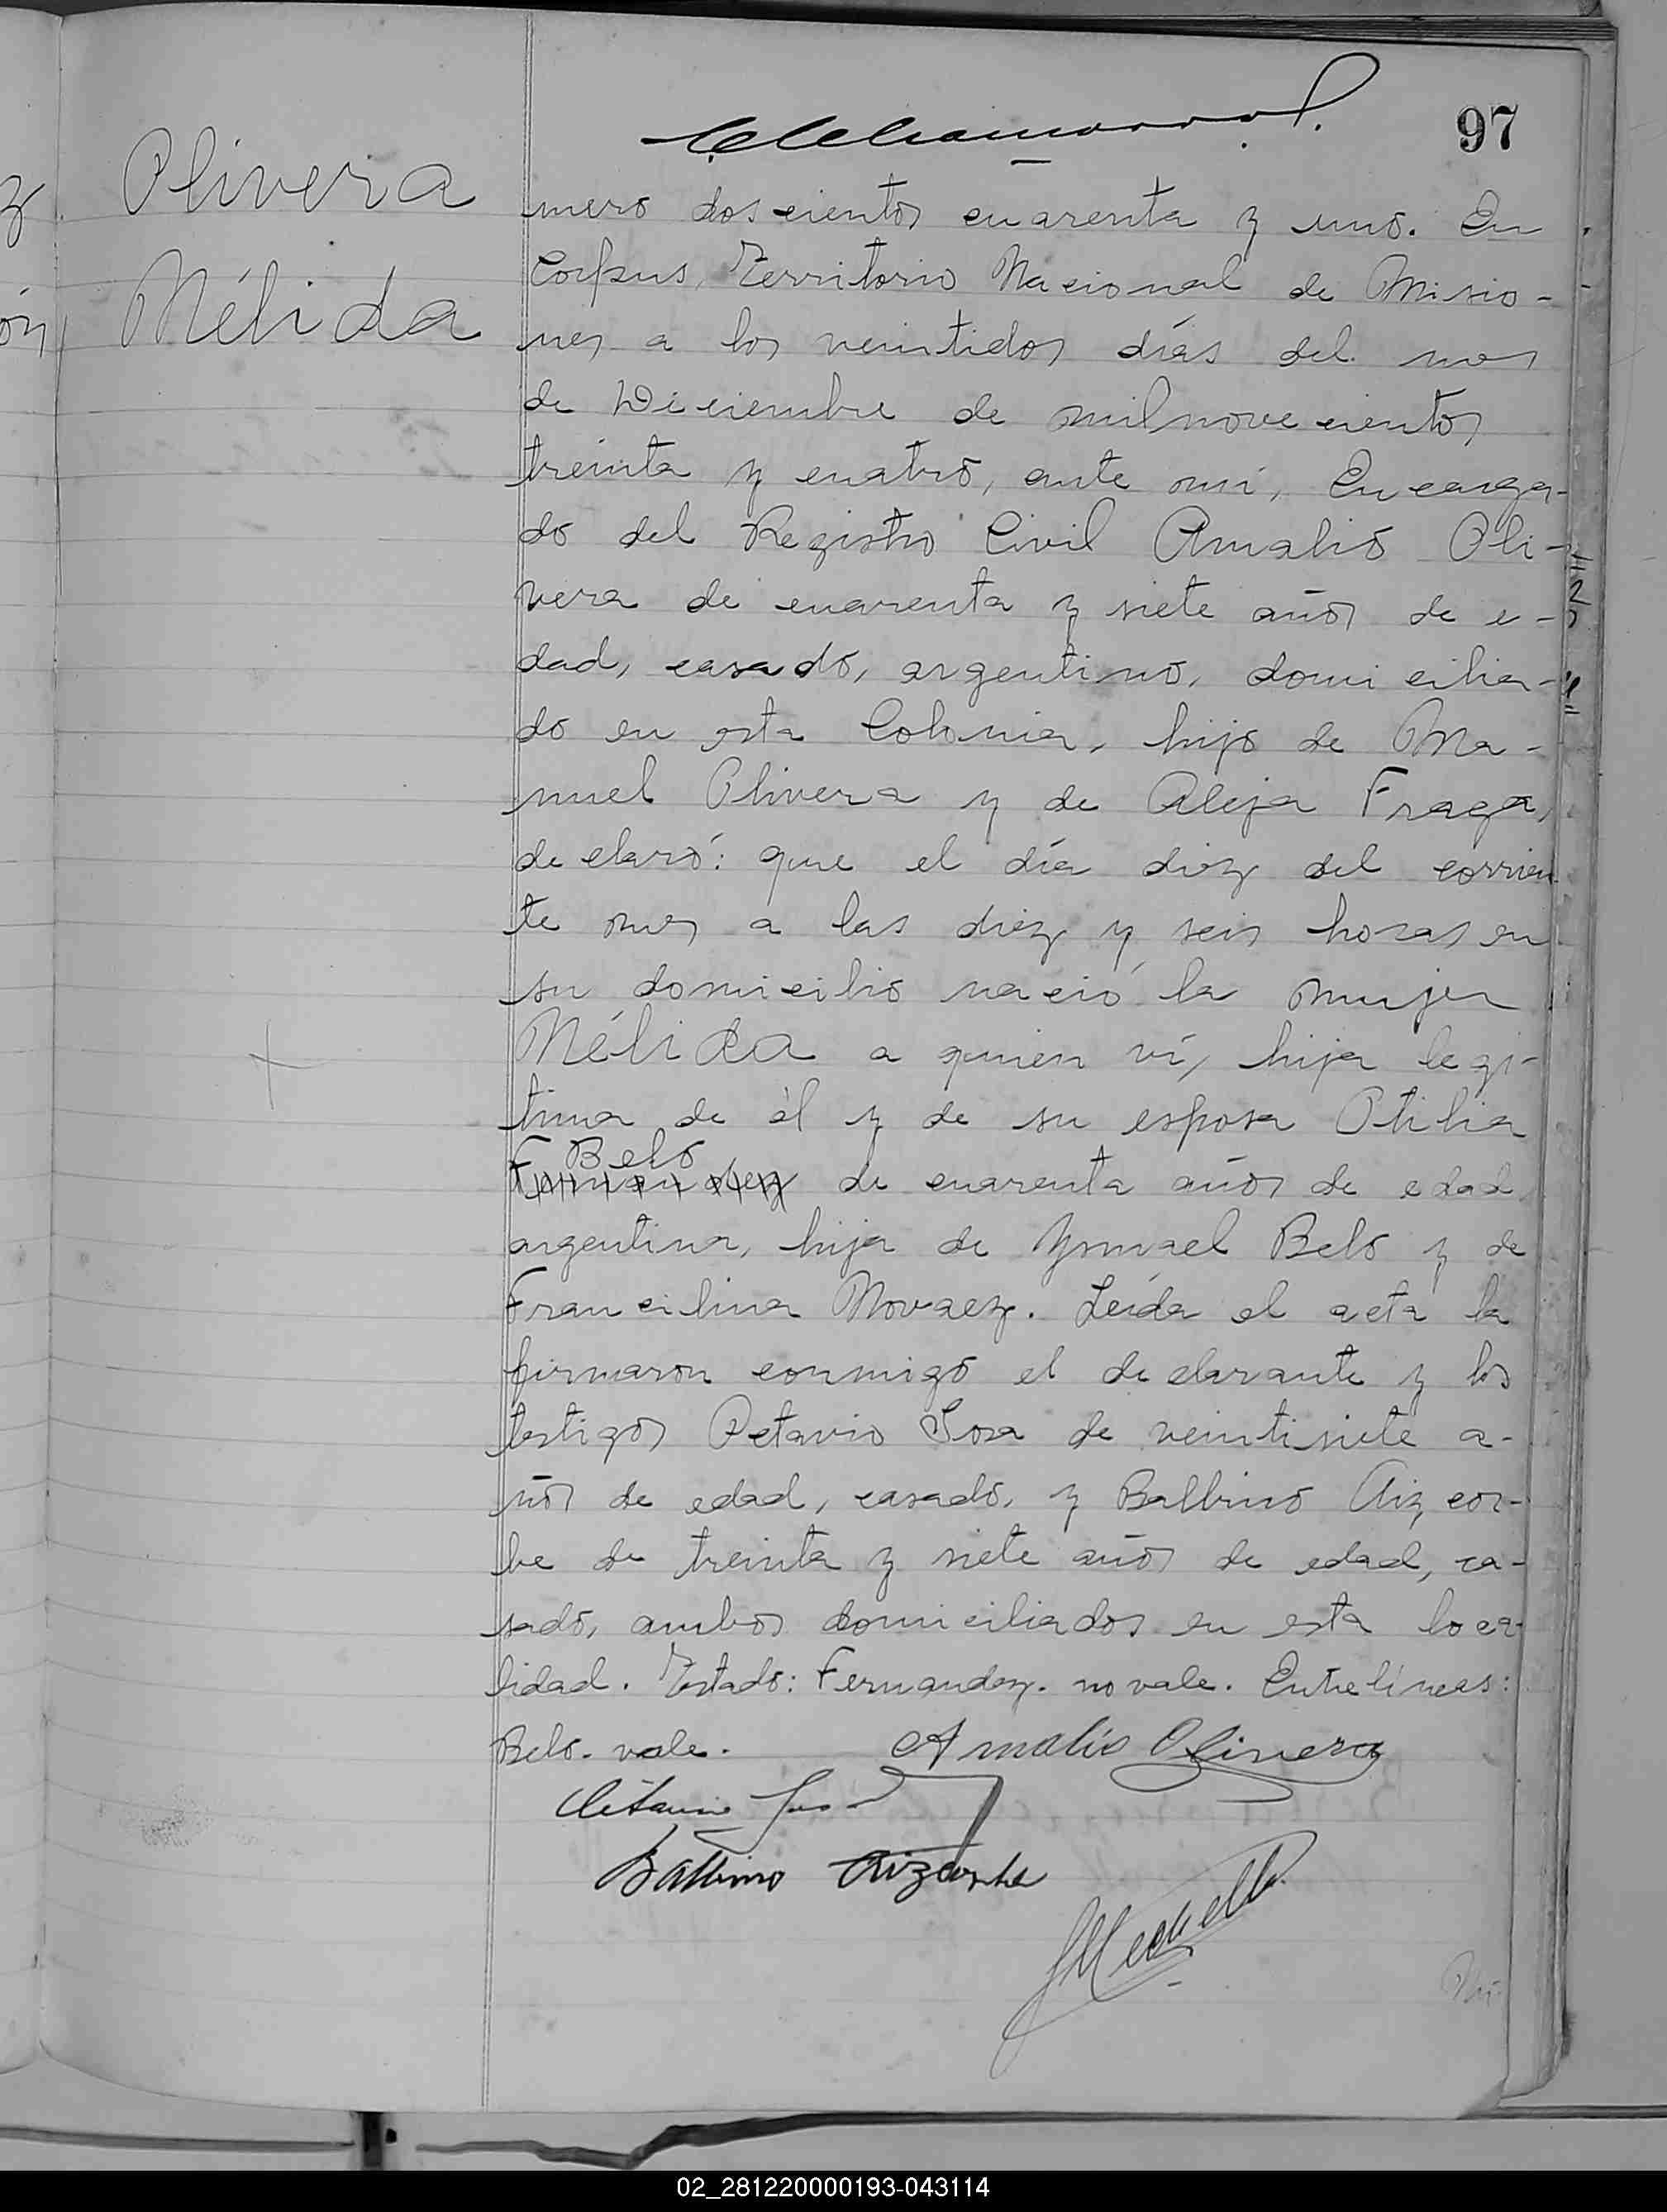 97
Olivera
Mélida
mero doscientos cuarenta y uno. En
Corpus, Territorio Nacional de Misio-
nes a los veintidos días del mes
de Diciembre de mil novecientos
treinta y cuatro, ante mí, Encarga-
do del Registro Civil Amalio Oli-
vera de cuarenta y siete años de e-
dad, casado, argentino, domicilia-
do en esta Colonia, hijo de Ma-
nuel Olivera y de Aleja Fraga,
declaró: que el día diez del corrien-
te mes a las diez y seis horas en
su domicilio nació la mujer
Mélida a quien ví, hija legí-
tima de él y de su esposa Otilia
Belo
Fernandez de cuarenta años de edad
argentina, hija de Ysmael Belo y de
Francilina Novaez. Leída el acta la
firmaron conmigo el declarante y los
testigos Octavio Sosa de veintisiete a-
ños de edad, casado, y Balbino Aizcor-
be de treinta y siete años de edad, ca-
sado, ambos domiciliados en esta loca-
lidad. Testado: Fernandez. no vale. Entrelíneas:
Belo. vale.
Amalio Olivera
Octavio Sosa
Balbino Aizcorbe
02_281220000193-043114